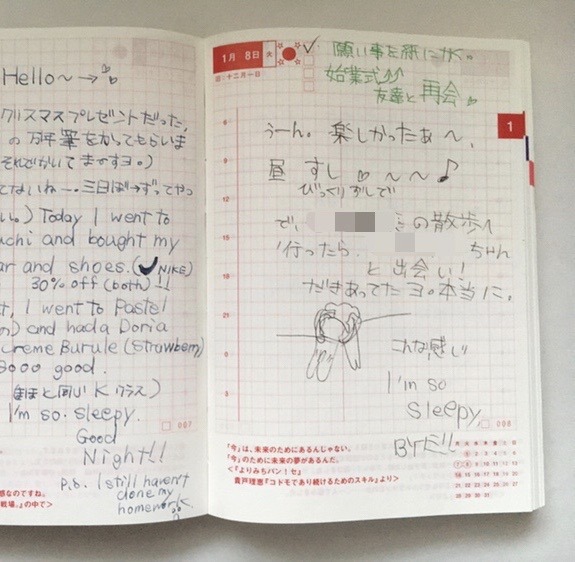 Hello〜→
クリスマスプレゼントだった
の万年筆をかってもらいま
それでかいてますヨ。)
てないね〜。三日ば
Today I went to
uchi and bought my
ar and shoes. (NIKE)
30% off (both)!!
t, I went to Pastel
の) and had a Doria
creme Burule (Strawberry)
Sooo good.
クラス)
I'm so sleepy.
Good
Night!!
P.S. I still haven't
done my
homework.
067
感なのですね。
戦場。』の中で>
1月 8日 火
旧:十二月一日
願い事を紙にかく。
始業式↑↑
友達と再会。
1
6
9
12
15
18
21
0
3
うーん。楽しかったぁ〜、
昼 すし 〜〜♪
びっくりずしで
で、 ミの散歩へ
行ったら、 ちゃん
と出会い!
だきあってたヨ。本当に。
こんな感じ
I'm so
Sleepy
BYだ!!
068
「今」は、未来のためにあるんじゃない。
「今」のために未来の夢があるんだ。
<『よりみちパン!セ』
貴戸理恵『コドモであり続けるためのスキル』より>